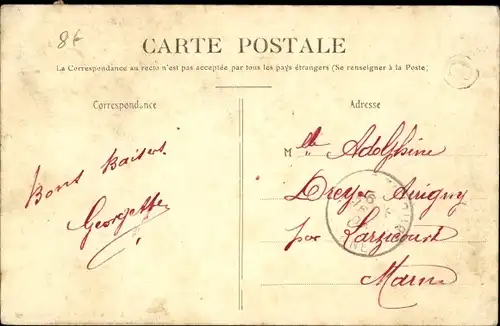 8€
CARTE POSTALE
La Correspondance au recto n'est pas acceptée par tous les pays étrangers (Se renseigner à la Poste)
Correspondance
Adresse
Bons Baisers
Georgette
Mlle Adolphine
Dreyer Arrigny
par Larzicourt
Marne